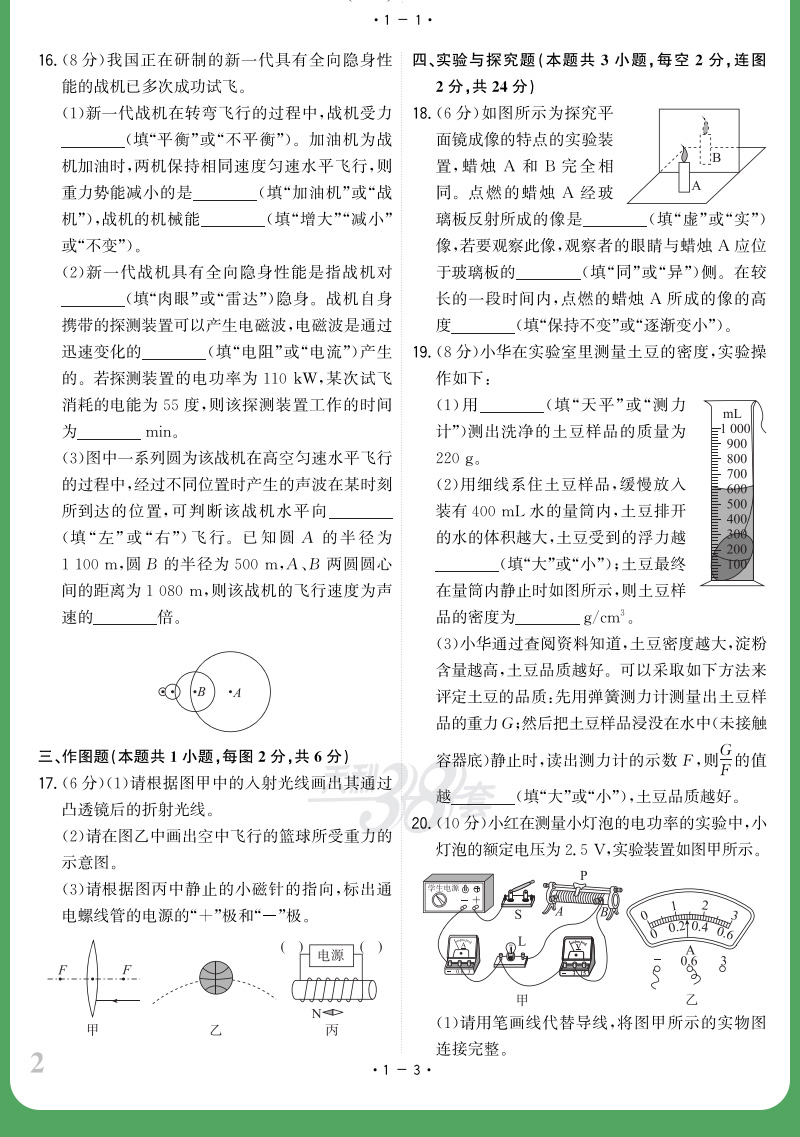 ·1－1·
16.(8分)我国正在研制的新一代具有全向隐身性
能的战机已多次成功试飞。
(1)新一代战机在转弯飞行的过程中,战机受力
________(填“平衡”或“不平衡”)。加油机为战
机加油时,两机保持相同速度匀速水平飞行,则
重力势能减小的是________(填“加油机”或“战
机”),战机的机械能________(填“增大”“减小”
或“不变”)。
(2)新一代战机具有全向隐身性能是指战机对
________(填“肉眼”或“雷达”)隐身。战机自身
携带的探测装置可以产生电磁波,电磁波是通过
迅速变化的________(填“电阻”或“电流”)产生
的。若探测装置的电功率为 110 kW,某次试飞
消耗的电能为 55 度,则该探测装置工作的时间
为________ min。
(3)图中一系列圆为该战机在高空匀速水平飞行
的过程中,经过不同位置时产生的声波在某时刻
所到达的位置,可判断该战机水平向________
(填“左”或“右”)飞行。已知圆 A 的半径为
1 100 m,圆 B 的半径为 500 m,A、B 两圆圆心
间的距离为 1 080 m,则该战机的飞行速度为声
速的________倍。
B A
三、作图题(本题共 1 小题,每图 2 分,共 6 分)
17.(6分)(1)请根据图甲中的入射光线画出其通过
凸透镜后的折射光线。
(2)请在图乙中画出空中飞行的篮球所受重力的
示意图。
(3)请根据图丙中静止的小磁针的指向,标出通
电螺线管的电源的“＋”极和“－”极。
F F
( ) 电源 ( )
N
甲 乙 丙
2
四、实验与探究题(本题共 3 小题,每空 2 分,连图
2 分,共 24 分)
18.(6分)如图所示为探究平
面镜成像的特点的实验装
置,蜡烛 A 和 B 完全相
同。点燃的蜡烛 A 经玻
璃板反射所成的像是________(填“虚”或“实”)
像,若要观察此像,观察者的眼睛与蜡烛 A 应位
于玻璃板的________(填“同”或“异”)侧。在较
长的一段时间内,点燃的蜡烛 A 所成的像的高
度________(填“保持不变”或“逐渐变小”)。
B
A
19.(8分)小华在实验室里测量土豆的密度,实验操
作如下:
(1)用________(填“天平”或“测力
计”)测出洗净的土豆样品的质量为
220 g。
(2)用细线系住土豆样品,缓慢放入
装有 400 mL 水的量筒内,土豆排开
的水的体积越大,土豆受到的浮力越
________(填“大”或“小”);土豆最终
在量筒内静止时如图所示,则土豆样
品的密度为________ g/cm³。
mL
1 000
900
800
700
600
500
400
300
200
100
(3)小华通过查阅资料知道,土豆密度越大,淀粉
含量越高,土豆品质越好。可以采取如下方法来
评定土豆的品质:先用弹簧测力计测量出土豆样
品的重力 G;然后把土豆样品浸没在水中(未接触
容器底)静止时,读出测力计的示数 F,则G/F的值
越________(填“大”或“小”),土豆品质越好。
20.(10分)小红在测量小灯泡的电功率的实验中,小
灯泡的额定电压为 2.5 V,实验装置如图甲所示。
学生电源
－ ＋
S
P
A B
L
A
V
甲
0 1 2 3
0 0.2 0.4 0.6
A
－ 0.6 3
乙
(1)请用笔画线代替导线,将图甲所示的实物图
连接完整。
·1－3·
38套